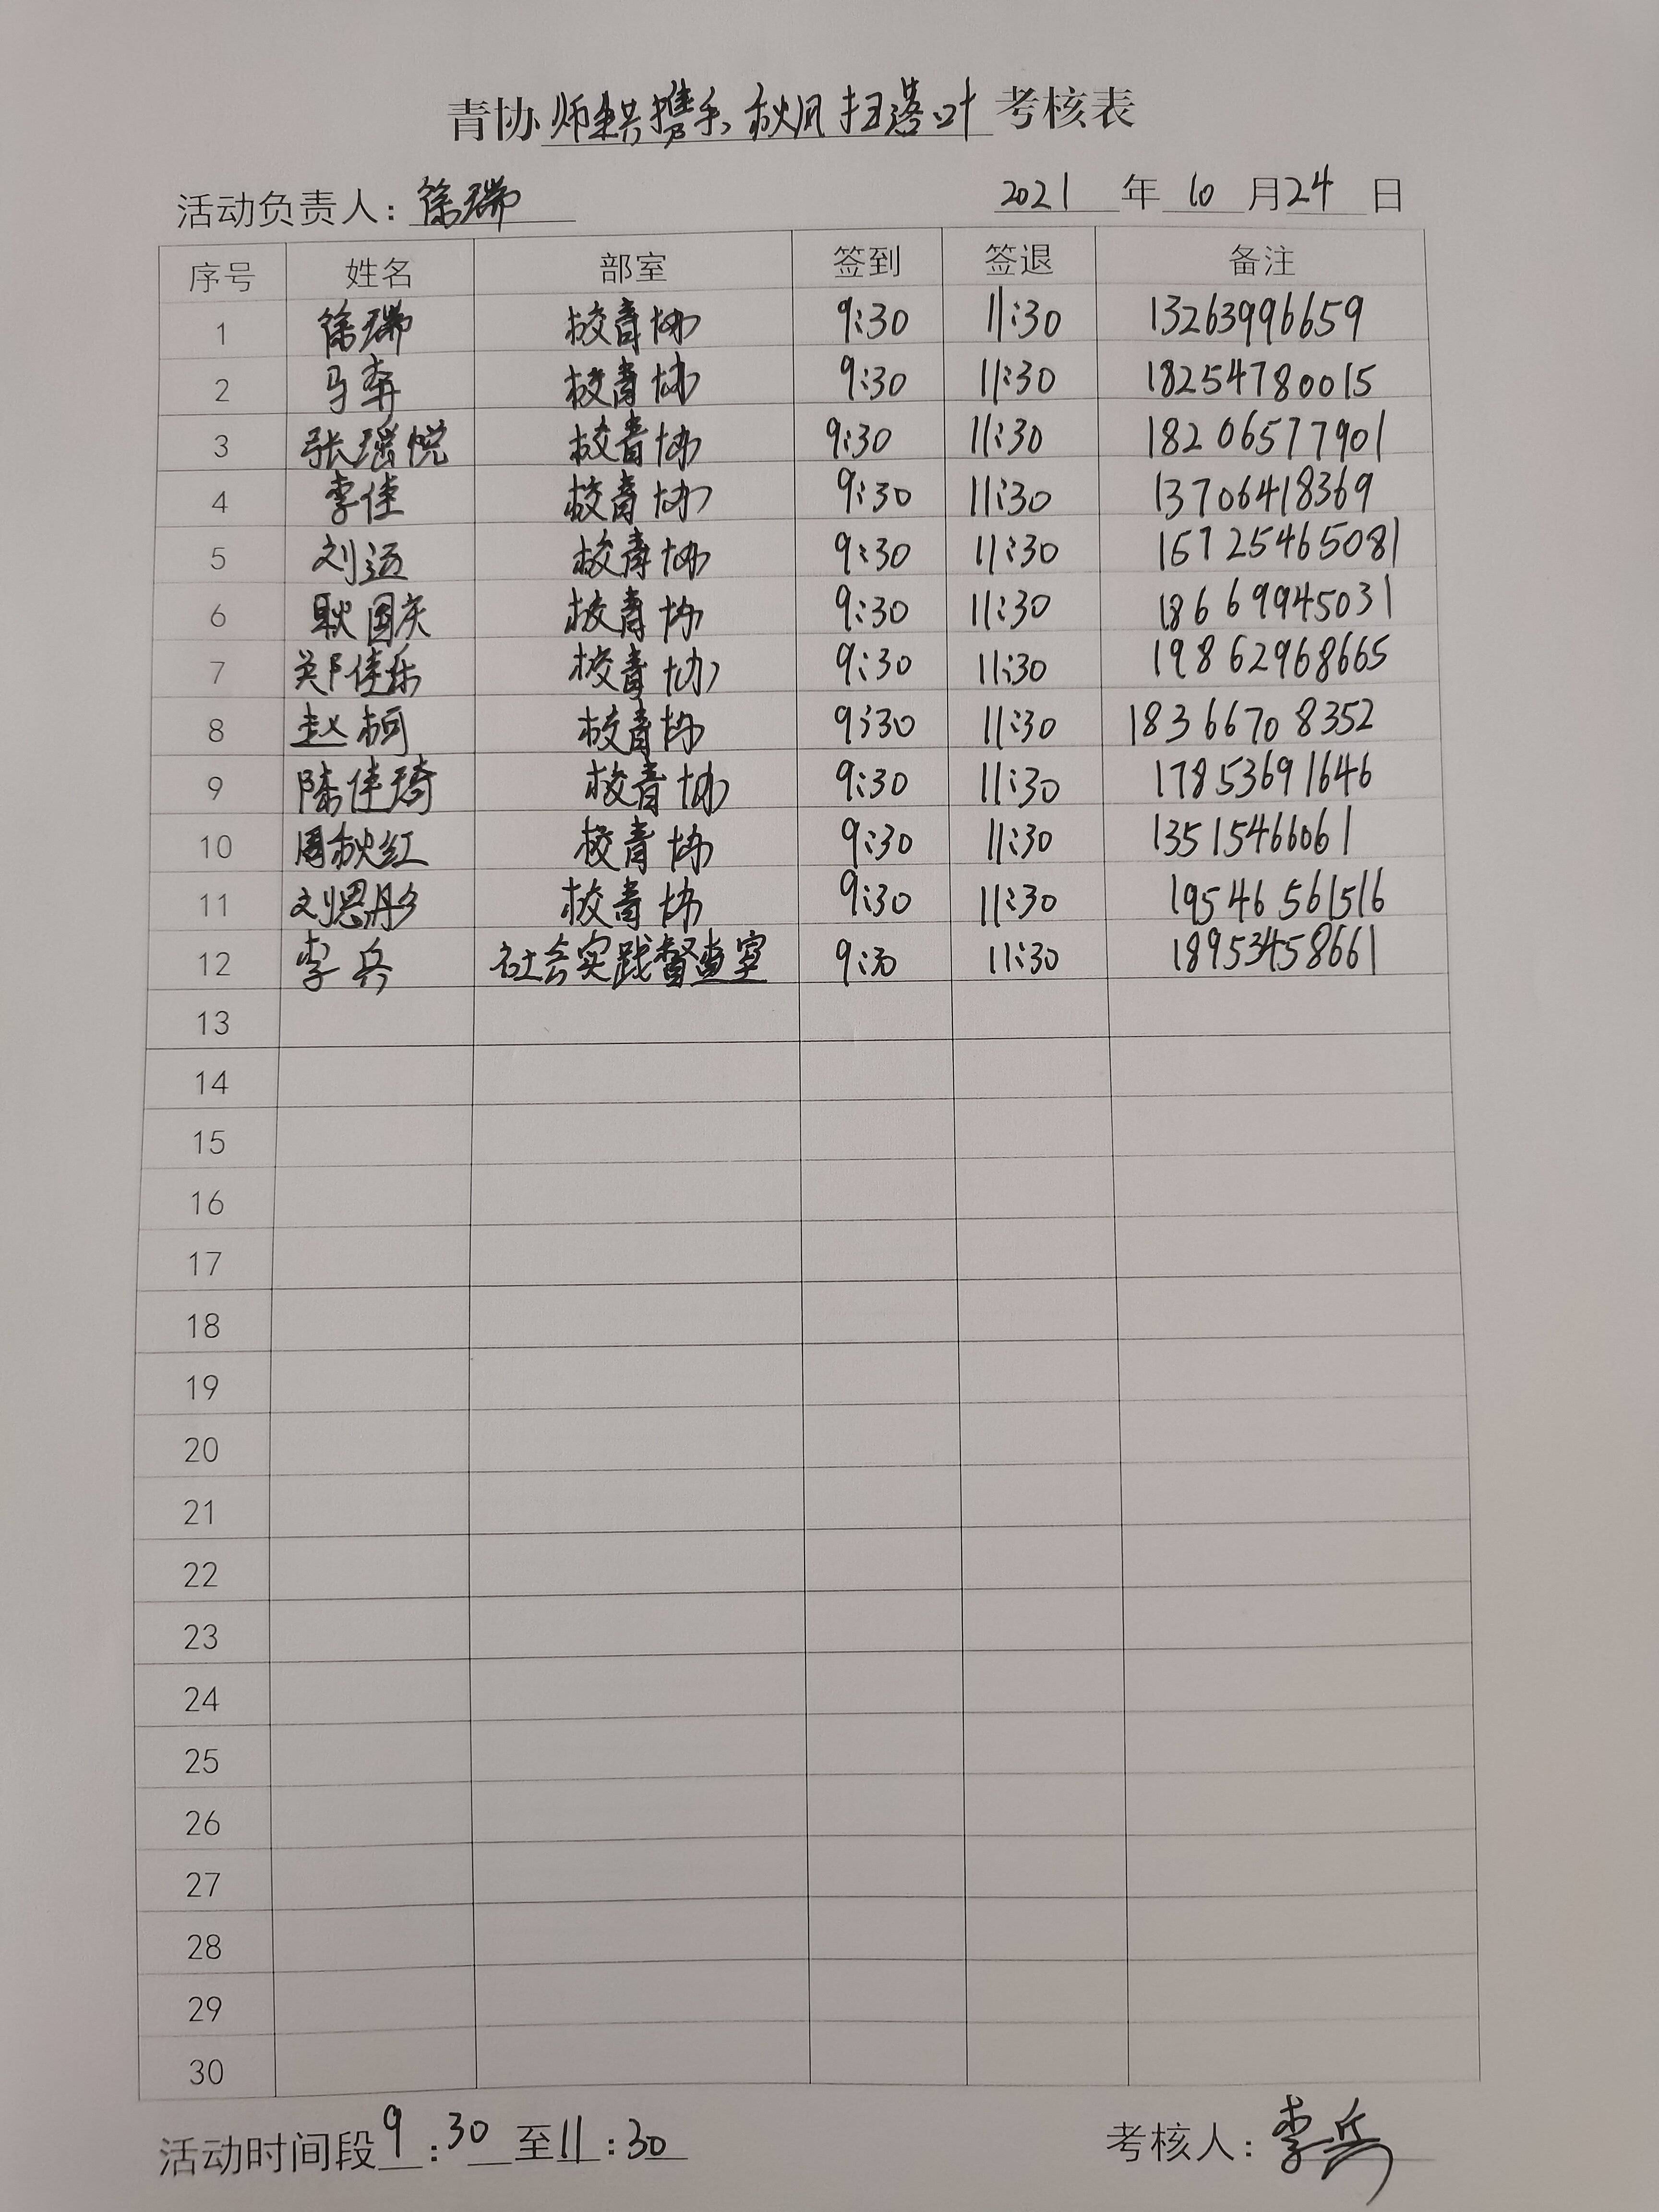 青协师生共携手,秋风扫落叶考核表
活动负责人:徐瑞 2021年10月24日
序号 姓名 部室 签到 签退 备注
1 徐瑞 校青协 9:30 11:30 13263996659
2 马犇 校青协 9:30 11:30 18254780015
3 张瑶悦 校青协 9:30 11:30 18206577901
4 李佳 校青协 9:30 11:30 13706418369
5 刘 校青协 9:30 11:30 16725465081
6 耿国庆 校青协 9:30 11:30 18669945031
7 郑佳乐 校青协 9:30 11:30 19862968665
8 赵柯 校青协 9:30 11:30 18366708352
9 陈佳琦 校青协 9:30 11:30 17853691646
10 周秋红 校青协 9:30 11:30 13515466061
11 刘恩彤 校青协 9:30 11:30 19546561516
12 李兵 社会实践督查室 9:30 11:30 18953458661
13
14
15
16
17
18
19
20
21
22
23
24
25
26
27
28
29
30
活动时间段9:30至11:30 考核人:李兵